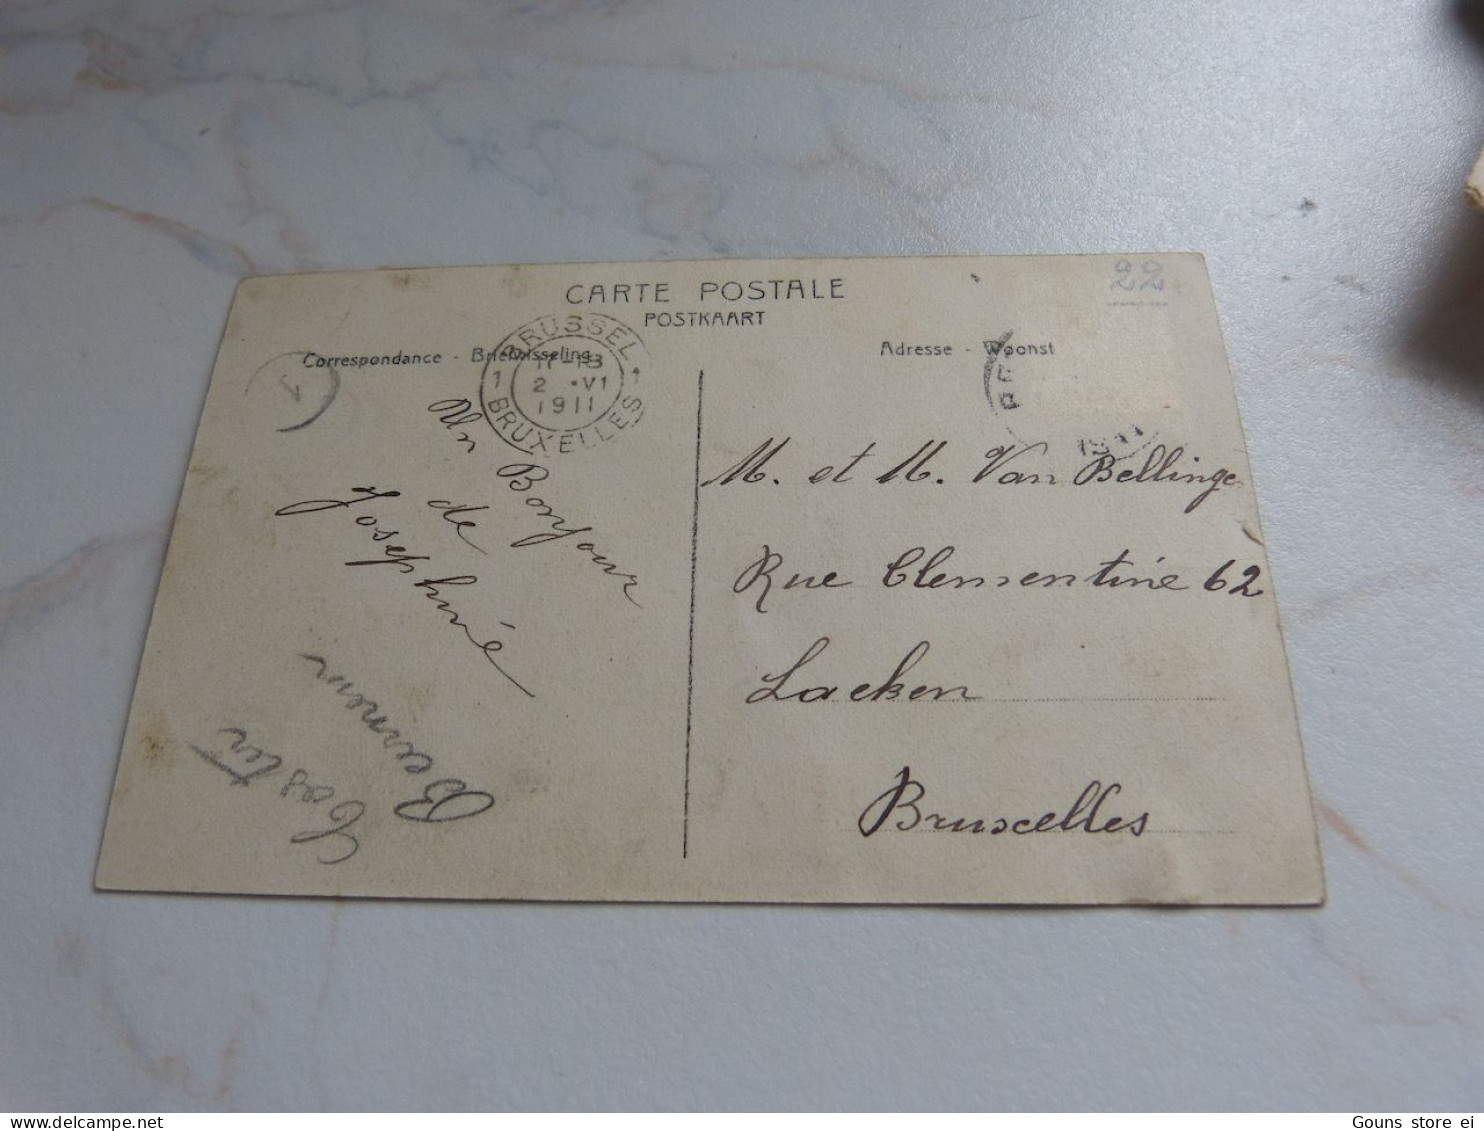 CARTE POSTALE
POSTKAART
22
Correspondance - Briefwisseling
Adresse - Woonst
BRUSSEL
1 17-18 1
2 •VI
1911
BRUXELLES
Un Bonjour
de
Josephine
M. et M. Van Bellinge
Rue Clementine 62
Laeken
Bruxelles
Gouns store ei